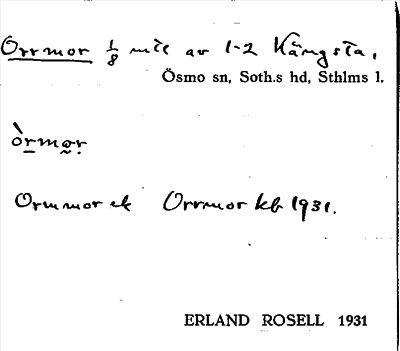 Orrmor 1/8 mtl av 1-2 Kängsta,
Ösmo sn, Soth.s hd, Sthlms l.
òrmor
Ormmor ek Orrmor kb 1931.
ERLAND ROSELL 1931